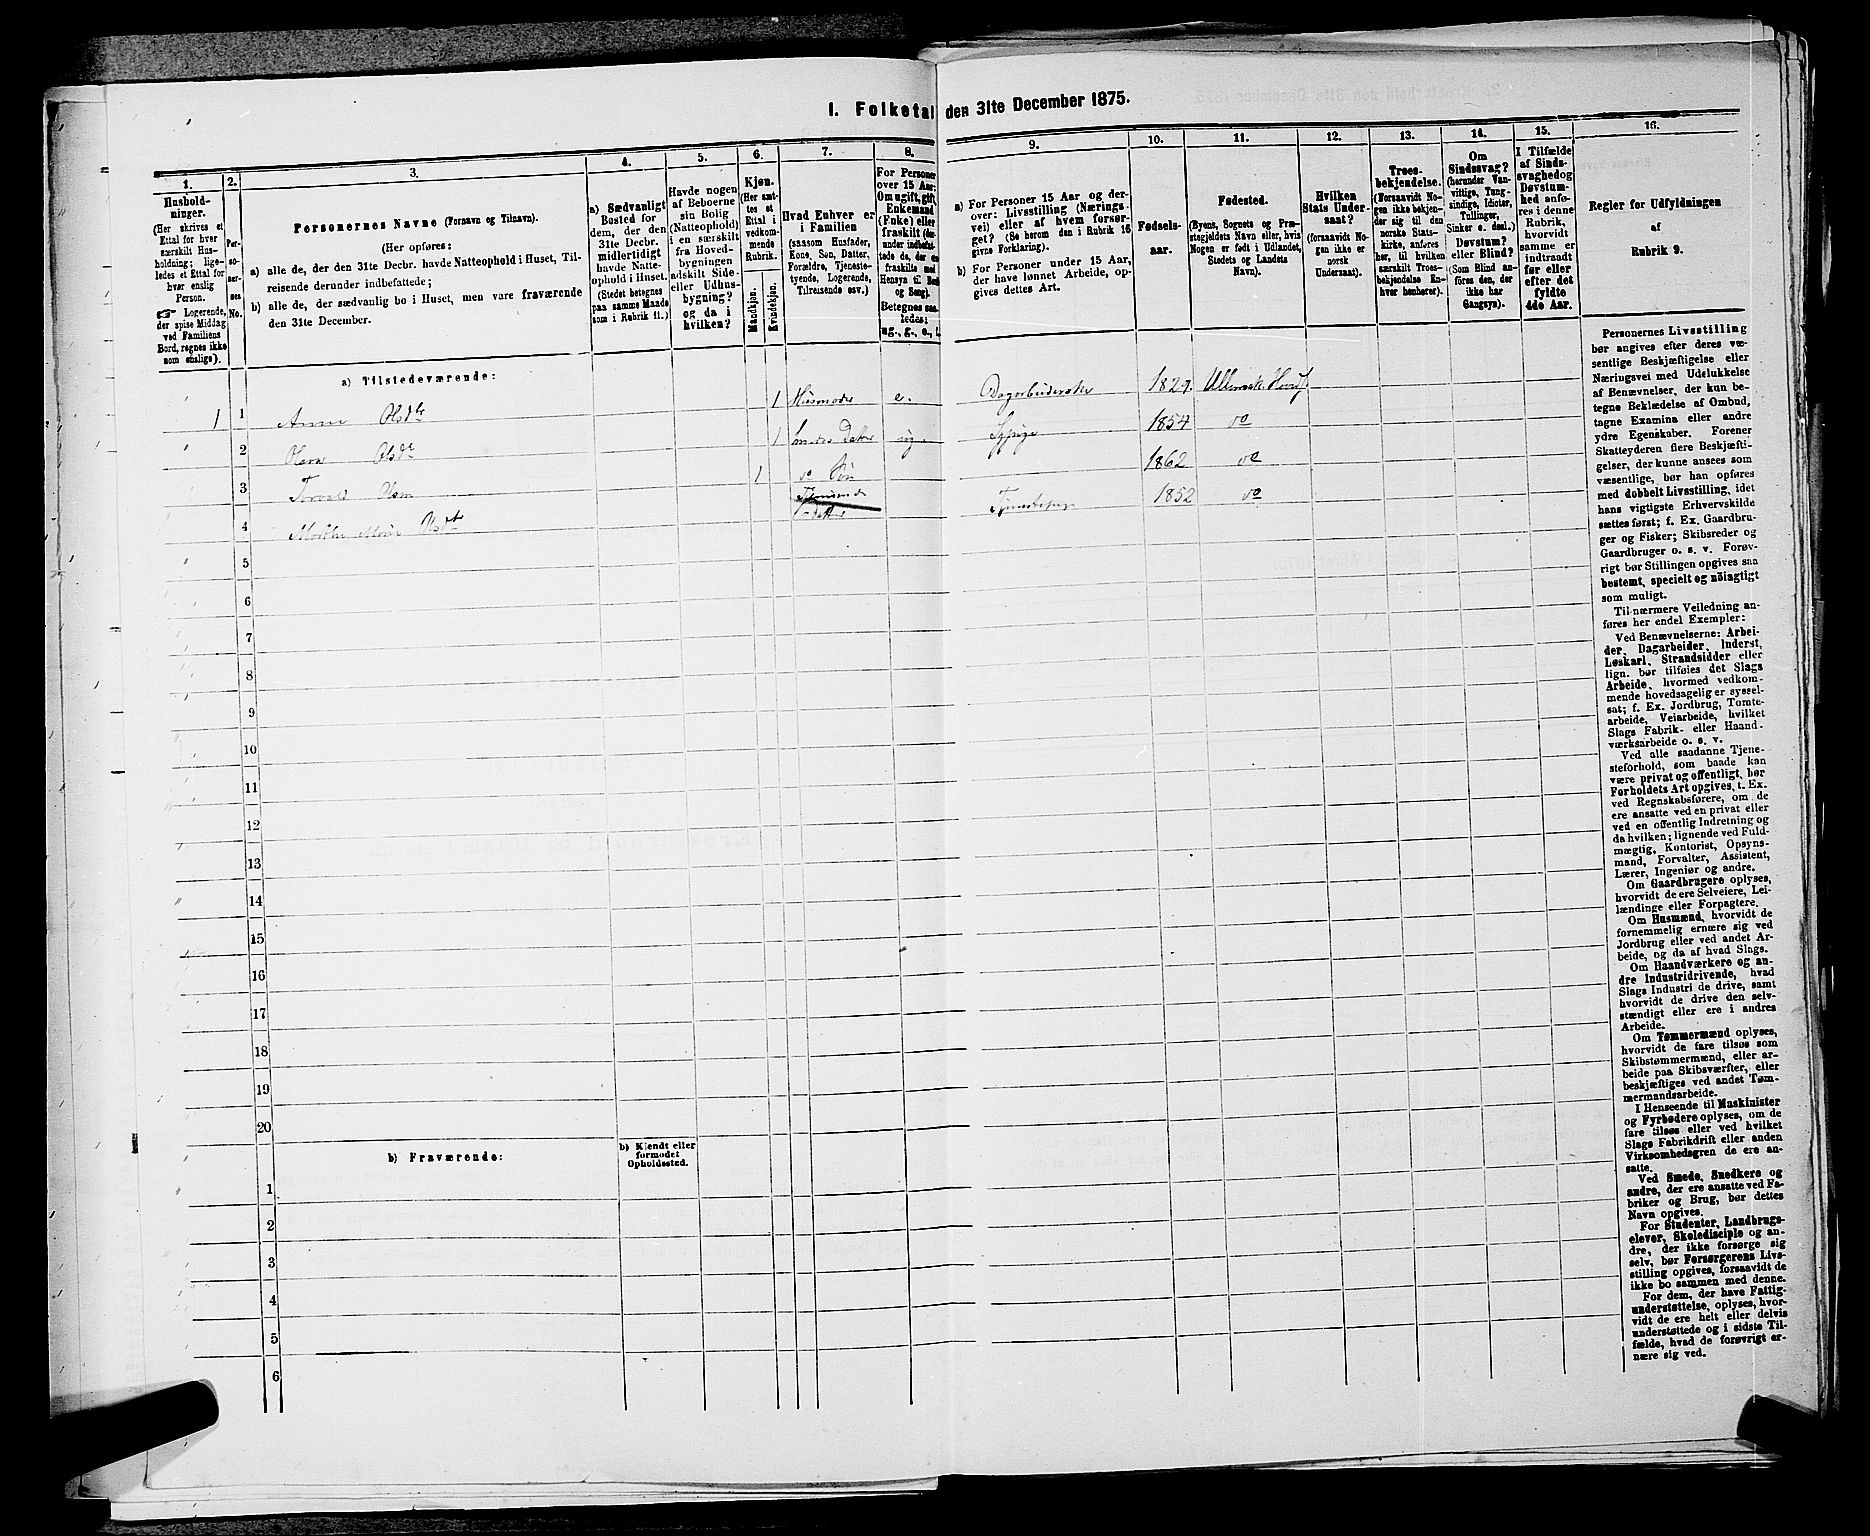 I. Folketal den 31te December 1875.
1. 2. 3. 4. 5. 6. 7. 8. 9. 10. 11. 12. 13. 14. 15. 16.
Hushold-
ninger.
(Her skrives et
Ettal for hver
særskilt Hus-
holdning; lige-
ledes et Ettal for
hver enslig
Person.
☞ Logerende,
der spise Middag
ved Familiens
Bord, regnes ikke
som enslige).
Per-
so-
ner-
nes
No.
Personernes Navne (Fornavn og Tilnavn).
(Her opføres:
a) alle de, der den 31te Decbr. havde Natteophold i Huset, Til-
reisende derunder indbefattede;
b) alle de, der sædvanlig bo i Huset, men vare fraværende
den 31te December.
a) Sædvanligt
Bosted for
dem, der den
31te Decbr.
midlertidigt
havde Natte-
ophold i Huset.
(Stedet betegnes
paa samme Maade
som i Rubrik 11.)
Havde nogen
af Beboerne
sin Bolig
(Natteophold)
i en særskilt
fra Hoved-
bygningen
adskilt Side-
eller Udhus-
bygning?
og da i
hvilken?
Kjøn.
(Her sæt-
tes et
Ettal i
vedkom-
mende
Rubrik.
Mandkjøn.
Kvindekjøn.
Hvad Enhver er
i Familien
(saasom Husfader,
Kone, Søn, Datter,
Forældre, Tjeneste-
tyende, Logerende,
Tilreisende osv.)
For Personer
over 15 Aar:
Om ugift, gift,
Enkemand
(Enke) eller
fraskilt (der-
under indbefat-
tede de, der ere
fraskilte med
Hensyn til Bord
og Seng).
Betegnes saa-
ledes:
ug., g., e., f.
a) For Personer 15 Aar og der-
over: Livsstilling (Nærings-
vei) eller af hvem forsør-
get? (Se herom den i Rubrik 16
givne Forklaring).
b) For Personer under 15 Aar,
der have lønnet Arbeide, op-
gives dettes Art.
Fødsels-
aar.
Fødested.
(Byens, Sognets og Præ-
stegjeldets Navn eller, hvis
Nogen er født i Udlandet,
Stedets og Landets
Navn).
Hvilken
Stats Under-
saat?
(forsaavidt No-
gen ikke er
norsk
Undersaat).
Troes-
bekjendelse.
(Forsaavidt No-
gen ikke bekjen-
der sig til den
norske Stats-
kirke, anføres
her, til hvilken
særskilt Troes-
bekjendelse En-
hver henhører).
Om
Sindssvag?
(herunder Van-
vittige, Tung-
sindige, Idioter,
Tullinger,
Sinker o. desl.)
Døvstum?
eller Blind?
(Som Blind an-
føres den, der
ikke har
Gangsyn).
I Tilfælde
af Sinds-
svaghed og
Døvstum-
hed anfø-
res i denne
Rubrik,
hvorvidt
samme er
indtraadt
før eller
efter det
fyldte
4de Aar.
Regler for Udfyldningen
af
Rubrik 9.
a) Tilstedeværende:
1 1 Anne Olsdtr 1 Husmoder e. 1829
2 Olsdtr 1 Datter ug. Sypige 1854 do
3 Torvald Olsen 1 do Søn 1862 do
4 Marthe Marie Olsdtr datter Tjenestepige 1852 do
5
6
7
8
9
10
11
12
13
14
15
16
17
18
19
20
b) Fraværende:
b) Kjendt eller
formodet
Opholdssted.
1
2
3
4
5
6
Personernes Livsstilling
bør angives efter deres væ-
sentlige Beskjæftigelse eller
Næringsvei med Udelukkelse
af Benævnelser, der kun be-
tegne Beklædelse af Ombud,
tagne Examina eller andre
ydre Egenskaber. Forener
Skatteyderen flere Beskjæfti-
gelser, der kunne ansees som
væsentlige, bør han opføres
med dobbelt Livsstilling, idet
hans vigtigste Erhvervskilde
sættes først; f. Ex. Gaardbru-
ger og Fisker; Skibsreder og
Gaardbruger o. s. v. Forøv-
rigt bør Stillingen opgives saa
bestemt, specielt og nøiagtigt
som muligt.
Til nærmere Veiledning an-
føres her endel Exempler:
Ved Benævnelserne: Arbei-
der, Dagarbeider, Inderst,
Løskarl, Strandsidder eller
lign. bør tilføies det Slags
Arbeide, hvormed vedkom-
mende hovedsagelig er syssel-
sat; f. Ex. Jordbrug, Tomte-
arbeide, Veiarbeide, hvilket
Slags Fabrik- eller Haand-
værksarbeide o. s. v.
Ved alle saadanne Tjene-
steforhold, som baade kan
være privat og offentligt, bør
Forholdets Art opgives, t. Ex.
ved Regnskabsførere, om de
ere ansatte ved en privat eller
ved en offentlig Indretning og
da hvilken; lignende ved Fuld-
mægtig, Kontorist, Opsyns-
mand, Forvalter, Assistent,
Lærer, Ingeniør og andre.
Om Gaardbrugere oplyses,
hvorvidt de ere Selveiere, Lei-
lændinge eller Forpagtere.
Om Husmænd, hvorvidt de
fornemmelig ernære sig ved
Jordbrug eller ved andet Ar-
beide, og da af hvad Slags.
Om Haandværkere og an-
dre Industridrivende, hvad
Slags Industri de drive, samt
hvorvidt de drive den selv-
stændigt eller ere i andres
Arbeide.
Om Tømmermænd oplyses,
hvorvidt de fare tilsøs som
Skibstømmermænd, eller ar-
beide paa Skibsværfter, eller
beskjæftiges ved andet Tøm-
mermandsarbeide.
I Henseende til Maskinister
og Fyrbødere oplyses, om de
fare tilsøs eller ved hvilket
Slags Fabrikdrift eller anden
Virksomhedsgren de ere an-
satte.
Ved Smede, Snedkere og
andre, der ere ansatte ved Fa-
briker og Brug, bør dettes
Navn opgives.
For Studenter, Landbrugs-
elever, Skoledisciple og an-
dre, der ikke forsørge sig
selv, bør Forsørgerens Livs-
stilling opgives, forsaavidt de
ikke bo sammen med denne.
For dem, der have Fattig-
understøttelse, oplyses, hvor-
vidt de ere helt eller delvis
understøttede og i sidste Til-
fælde, hvad de forøvrigt er-
nære sig ved.